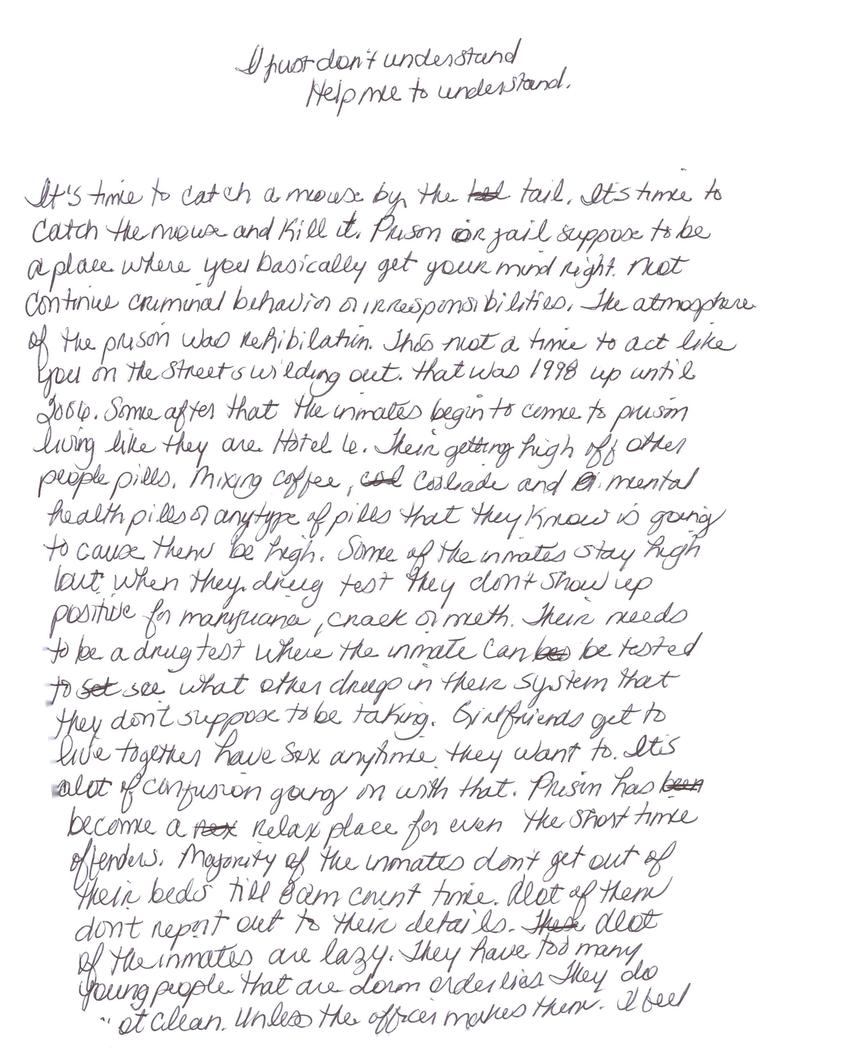 I just don't understand
Help me to understand.
It's time to catch a mouse by the tail. Its time to
catch the mouse and kill it. Prison or jail suppose to be
a place where you basically get your mind right. not
continue criminal behavior or irresponsibilities. The atmosphere
of the prison was rehibilation. This not a time to act like
you on the streets wilding out. that was 1998 up until
2006. Some after that the inmates begin to come to prison
living like they are Hotel 6. Their getting high off other
people pills. Mixing coffee, and mental
health pills or anytype of pills that they know is going
to cause them be high. Some of the inmates stay high
but when they drug test they don't show up
positive for marijuana, crack or meth. Their needs
to be a drug test where the inmate can be tested
to see what other drugs in their system that
they don't suppose to be taking. Girlfriends get to
live together have sex anytime they want to. It's
alot of confusion going on with that. Prison has
become a relax place for even the short time
offenders. Majority of the inmates don't get out of
their beds till 8am count time. Alot of them
don't report out to their details. Alot
of the inmates are lazy. They have too many
young people that are dorm orderlies They do
ot clean. Unless the officer makes them. I feel